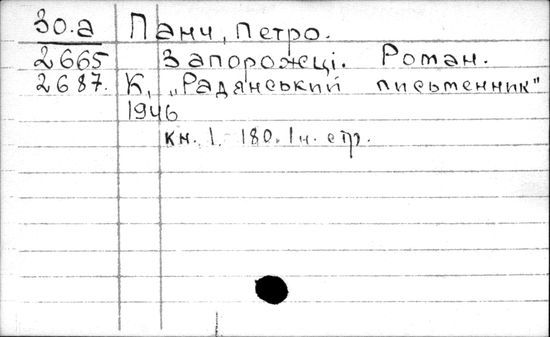 30.а Панч, Петро.
2665 Запорожці. Роман.
2687. К, „Радянський письменник"
1946
кн. 1. 180. 1 н. стр.